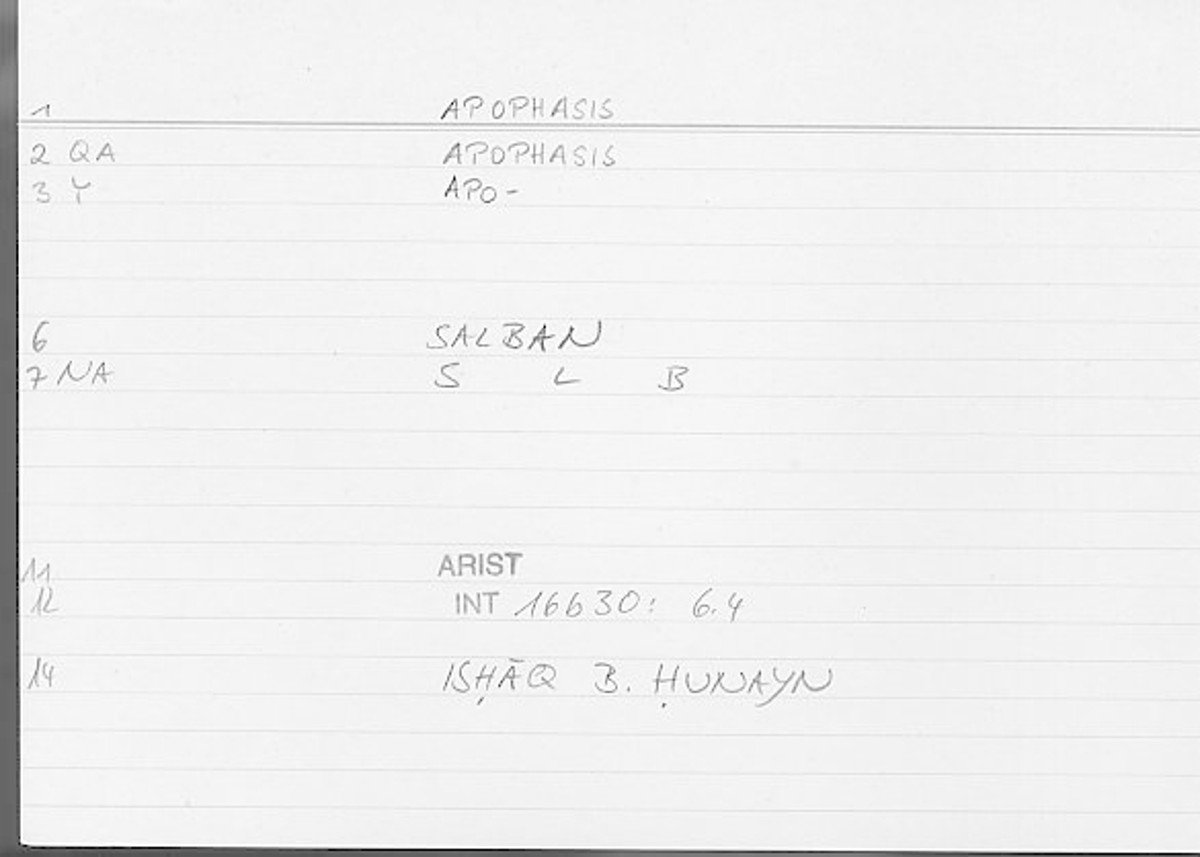 1 APOPHASIS
2 QA APOPHASIS
3 Y APO-
6 SALBAN
7 NA S L B
11 ARIST
12 INT 16630: 6.4
14 ISḤĀQ B. ḤUNAYN